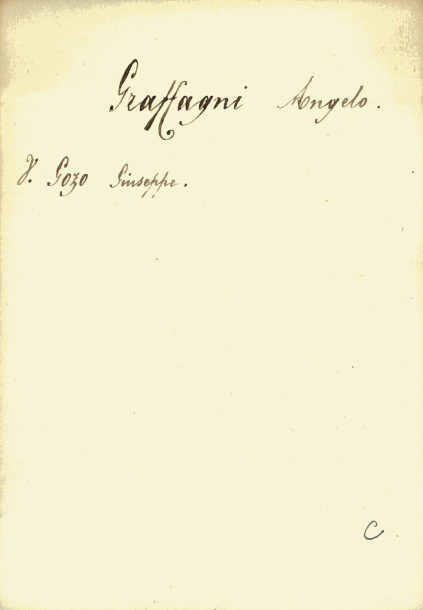 Graffagni Angelo.
V. Gozo Giuseppe.
C